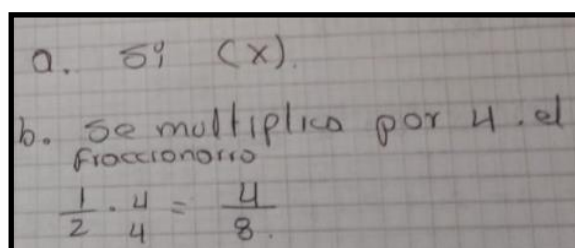 a. Si (x).
b. Se multiplica por 4. el
fraccionario
1/2 . 4/4 = 4/8.